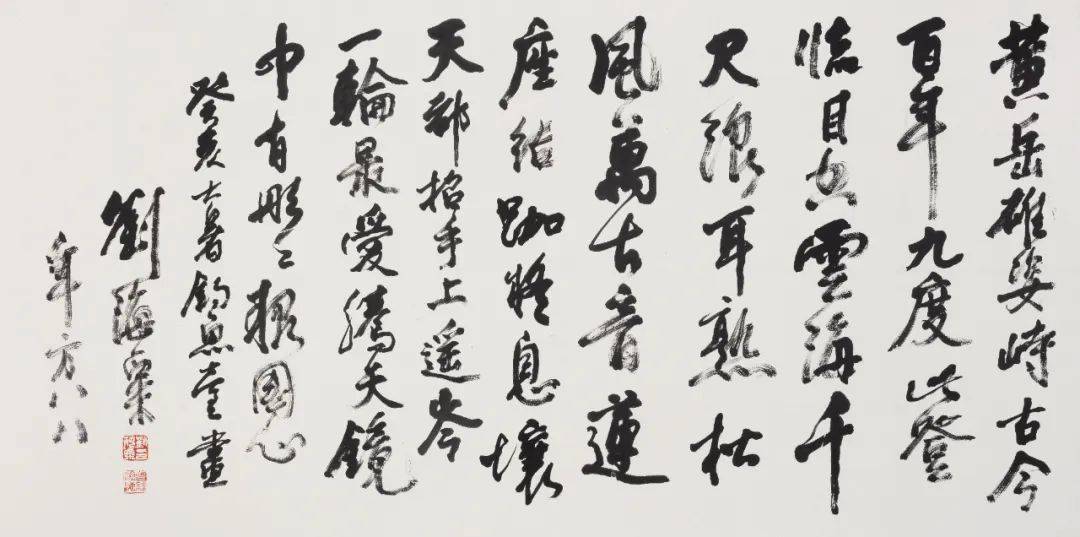 黃岳雄姿峙古今
百年九度此登
臨目空雲海千
尺浪耳熟松
風萬古音蓮
座結跏疑息壤
天都招手上遥岑
一輪最愛騰天鏡
中有彤彤報國心
癸亥大暑鈞思堂書
劉海粟
年方八八